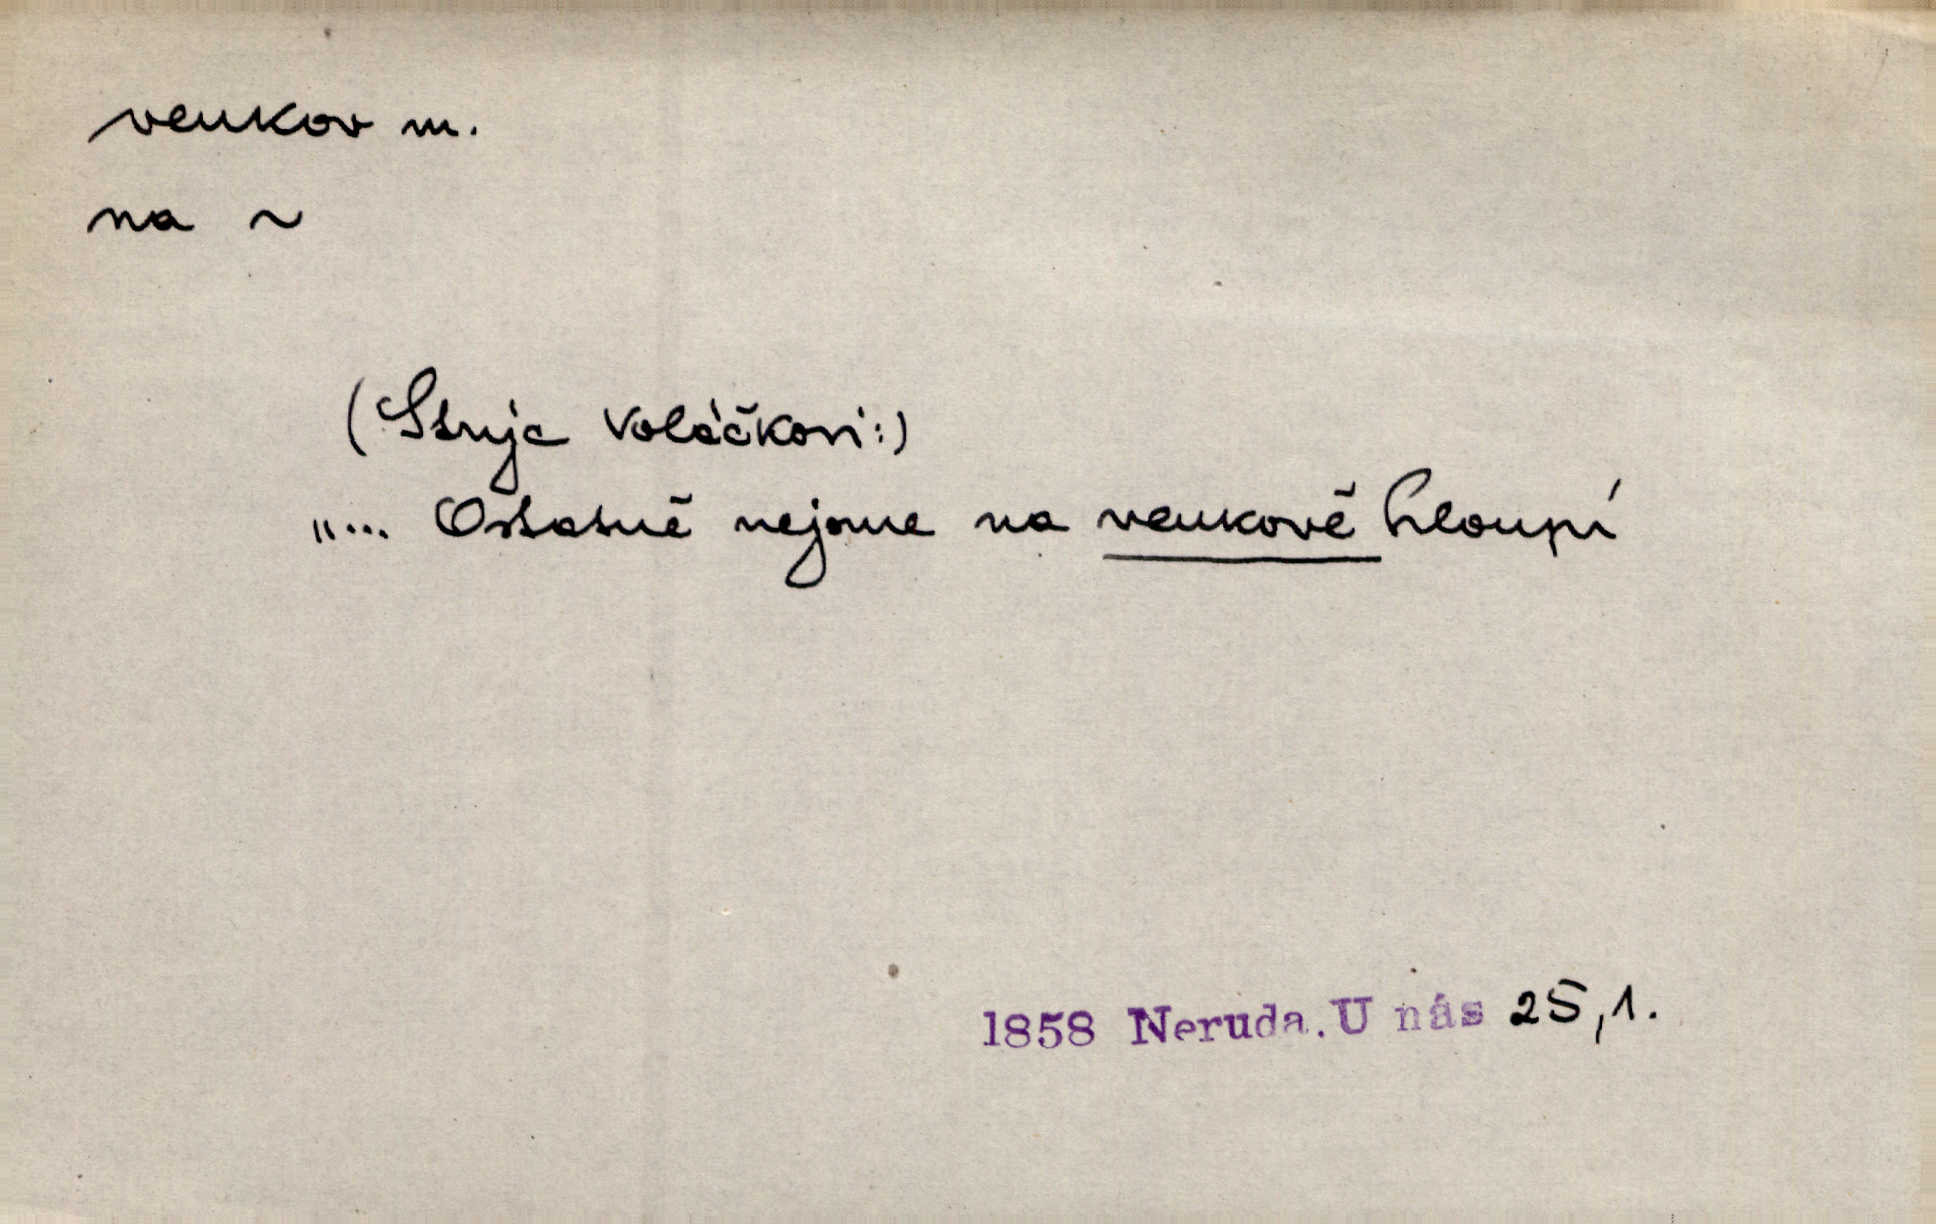 venkov m.
na ~
(Strýc Voláčkovi:)
„... Ostatně nejsme na venkově hloupí
1858 Neruda. U nás 25,1.